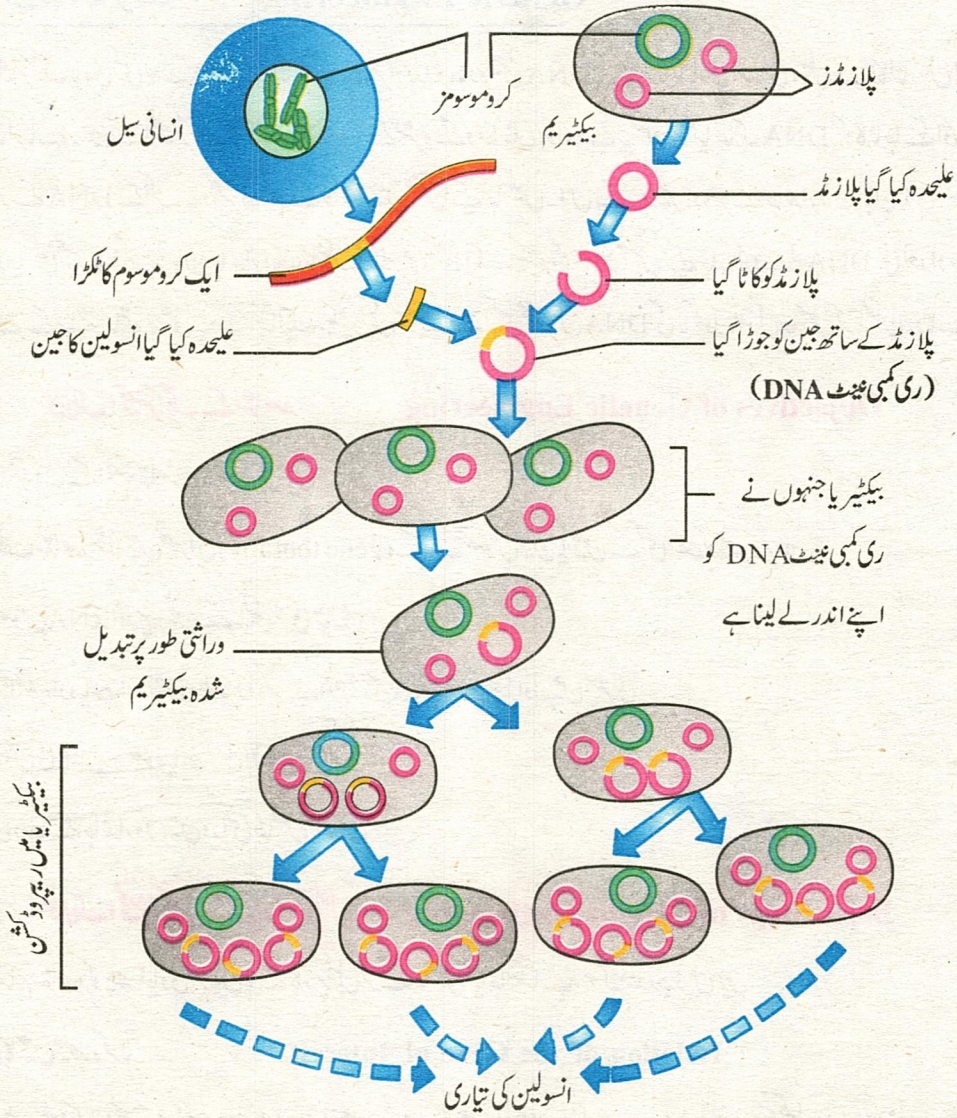 کروموسومز
پلازمڈز
بیکٹیریم
انسانی سیل
علیحدہ کیا گیا پلازمڈ
ایک کروموسوم کا ٹکڑا
پلازمڈ کو کاٹا گیا
علیحدہ کیا گیا انسولین کا جین
پلازمڈ کے ساتھ جین کو جوڑا گیا
(ری کمبی نینٹ DNA)
بیکٹیریا جنہوں نے
ری کمبی نینٹ DNA کو
اپنے اندر لے لینا ہے
وراثتی طور پر تبدیل
شدہ بیکٹیریم
بیکٹیریا میں ریپروڈکشن
انسولین کی تیاری